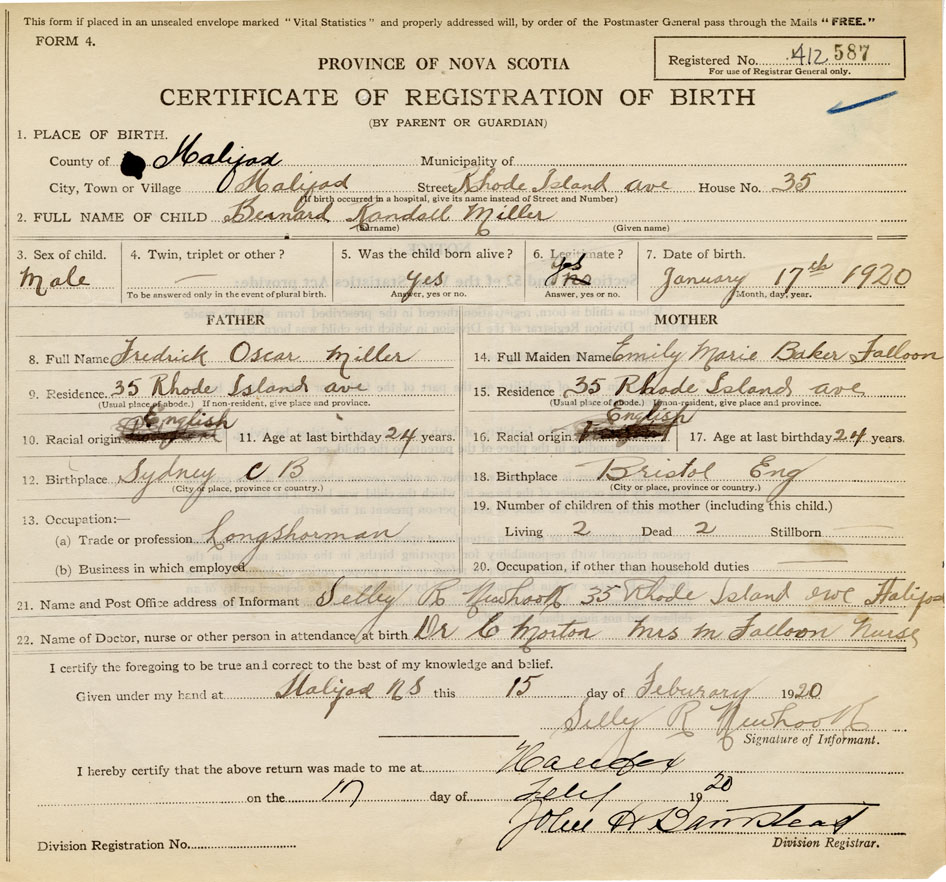 This form if placed in an unsealed envelope marked "Vital Statistics" and properly addressed will, by order of the Postmaster General pass through the Mails "FREE."
FORM 4.
Registered No. 412 587
For use of Registrar General only.
PROVINCE OF NOVA SCOTIA
CERTIFICATE OF REGISTRATION OF BIRTH
(BY PARENT OR GUARDIAN)
1. PLACE OF BIRTH.
County of Halifax Municipality of
City, Town or Village Halifax Street Rhode Island ave House No. 35
(If birth occurred in a hospital, give its name instead of Street and Number)
2. FULL NAME OF CHILD Bernard Randall Miller
(Surname) (Given name)
3. Sex of child. 4. Twin, triplet or other? 5. Was the child born alive? 6. Legitimate? 7. Date of birth.
Male — yes yes no January 17th 1920
To be answered only in the event of plural birth. Answer, yes or no. Answer, yes or no. Month, day, year.
FATHER MOTHER
8. Full Name Fredrick Oscar Miller 14. Full Maiden Name Emily Marie Baker Falloon
9. Residence 35 Rhode Island ave 15. Residence 35 Rhode Island ave
(Usual place of abode.) If non-resident, give place and province. (Usual place of abode.) If non-resident, give place and province.
10. Racial origin English 11. Age at last birthday 24 years. 16. Racial origin English 17. Age at last birthday 24 years.
12. Birthplace Sydney C B 18. Birthplace Bristol Eng
(City or place, province or country.) (City or place, province or country.)
13. Occupation:— 19. Number of children of this mother (including this child.)
(a) Trade or profession Longshorman Living 2 Dead 2 Stillborn —
(b) Business in which employed 20. Occupation, if other than household duties —
21. Name and Post Office address of Informant Selley R Newhook 35 Rhode Island ave Halifax
22. Name of Doctor, nurse or other person in attendance at birth Dr C Morton Mrs M Falloon Nurse
I certify the foregoing to be true and correct to the best of my knowledge and belief.
Given under my hand at Halifax NS this 15 day of Feburary 1920
Selly R Newhook
Signature of Informant.
I hereby certify that the above return was made to me at Halifax
on the 17 day of Feby 1920
John H Barnstead
Division Registration No. Division Registrar.